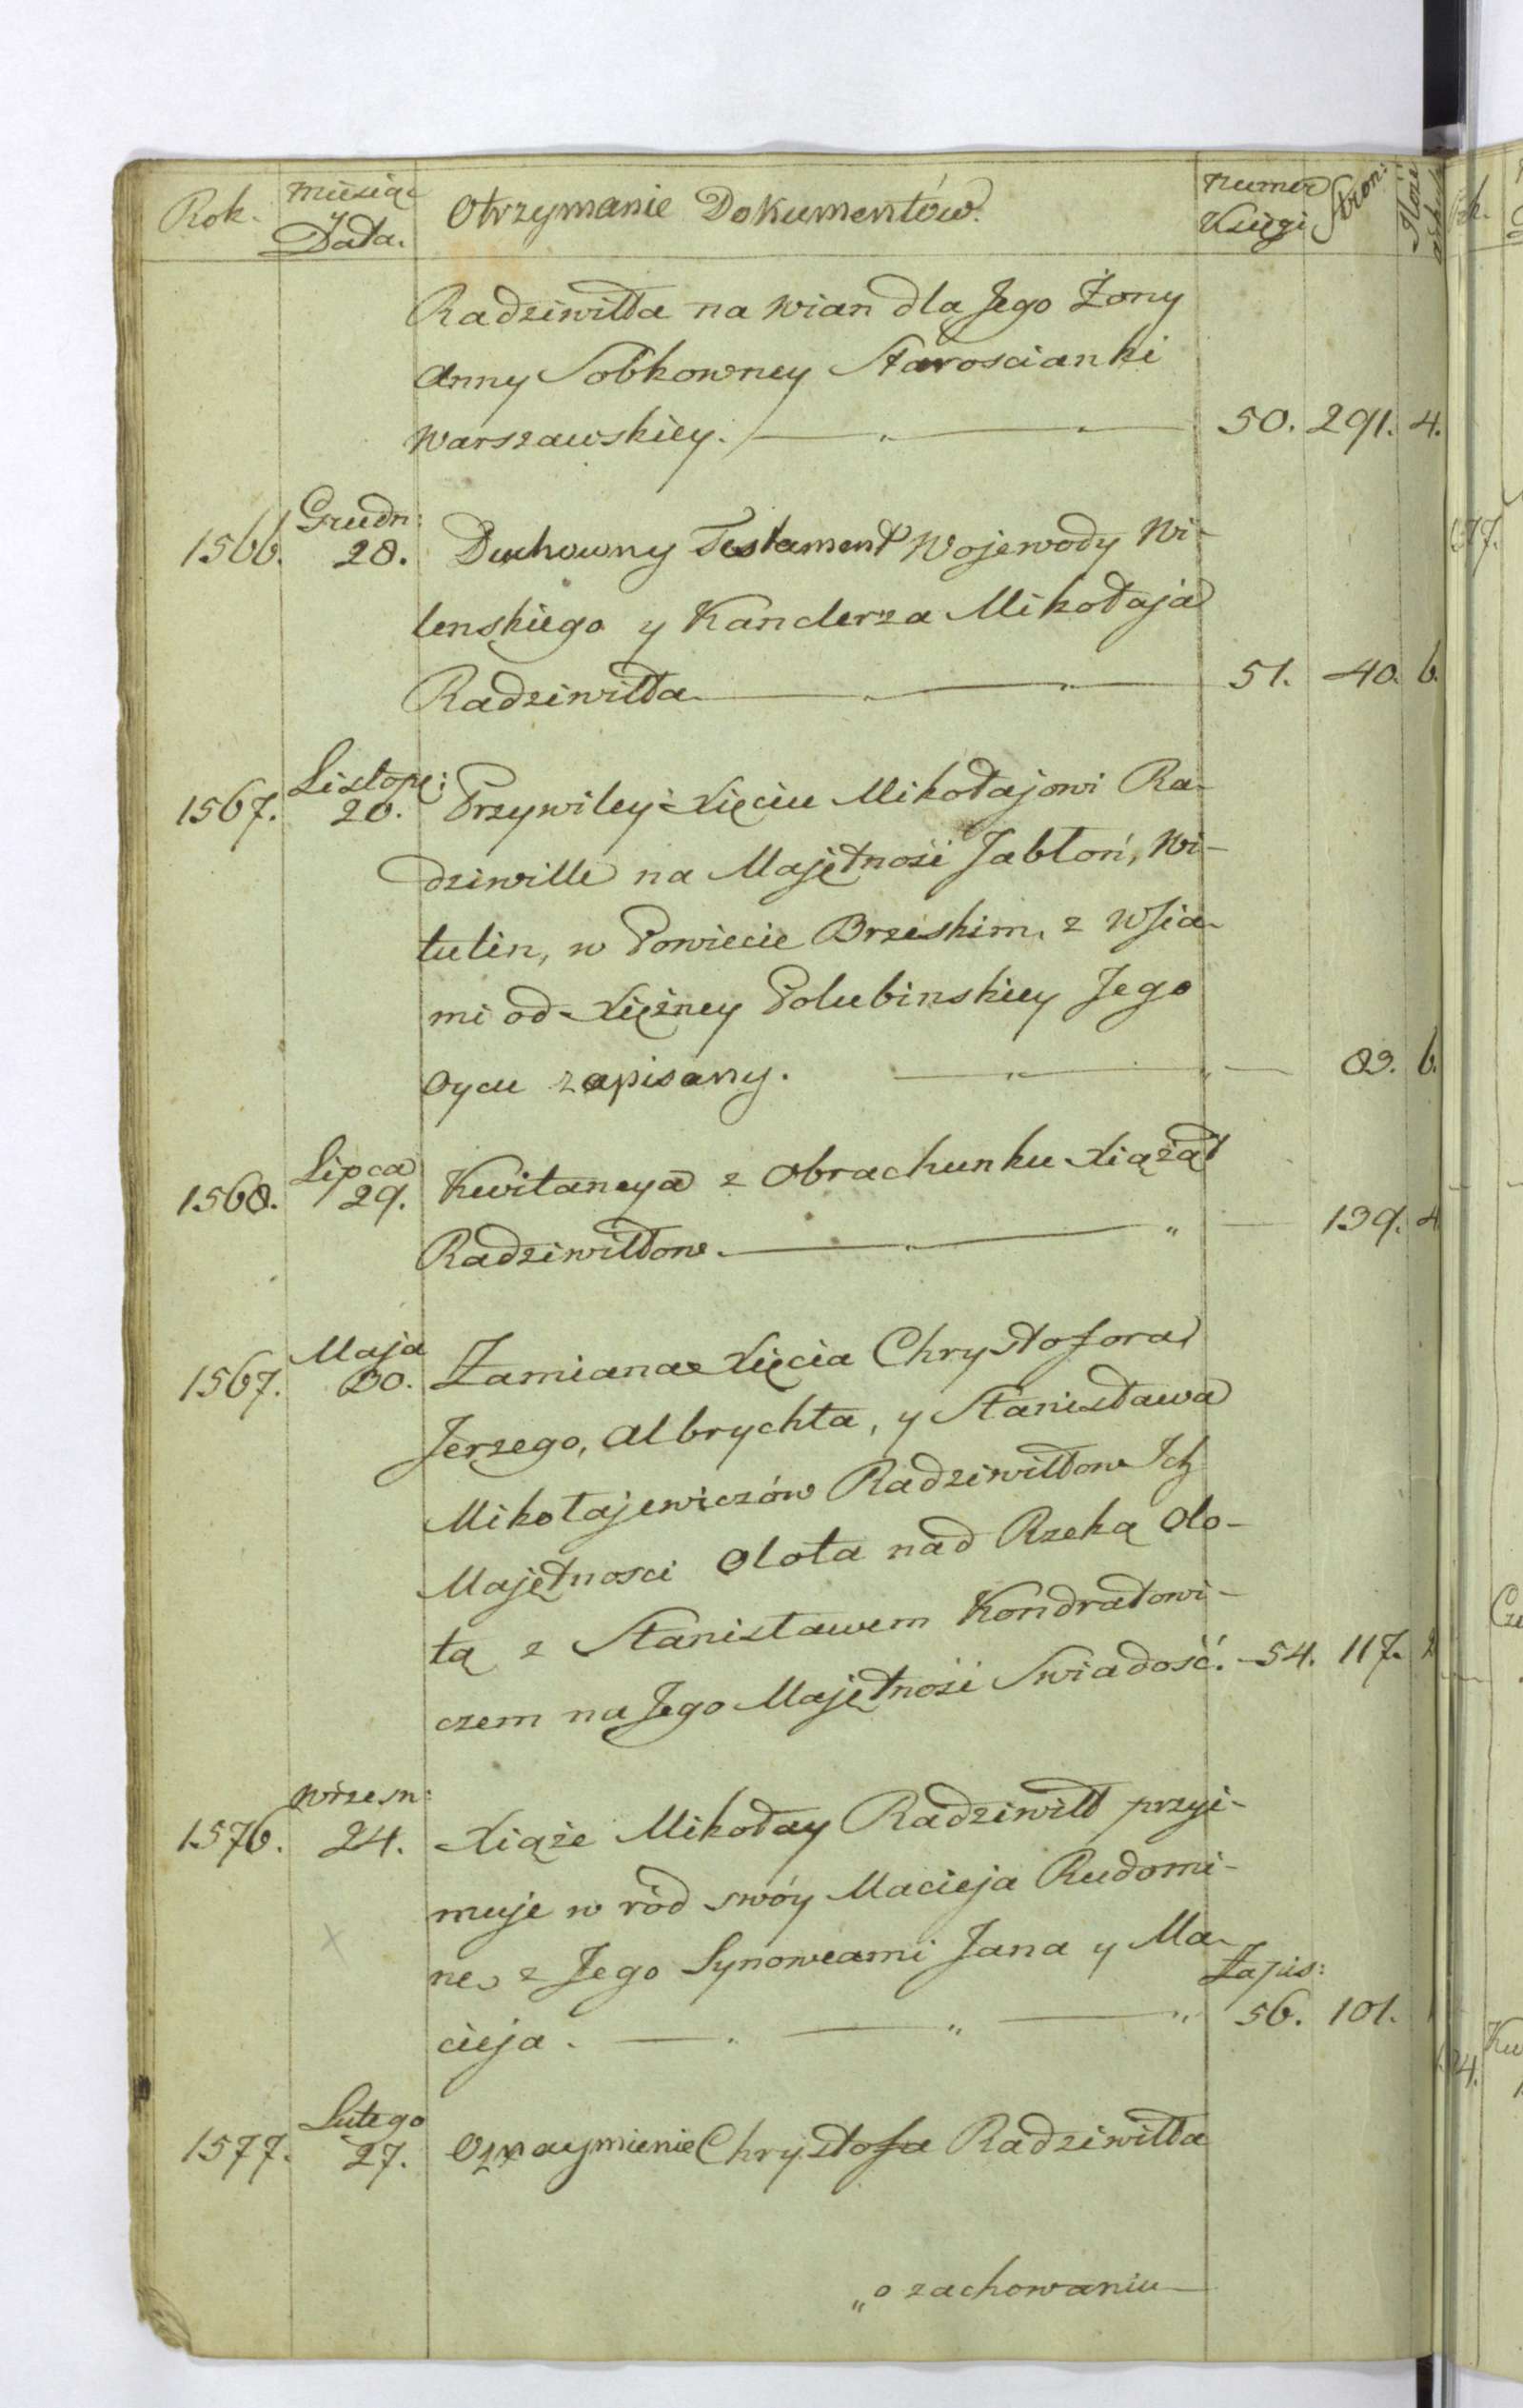 Rok. Miesiąc y Data. Otrzymanie Dokumentów. Numer Księgi Stron: Ilość arkuszy
Radziwiłła na wian dla Jego Żony
Anny Sobkowney Starościanki
Warszawskiey. 50. 291. 4.
1566. Grudn: 28. Duchowny Testament Wojewody Wi-
lenskiego y Kanclerza Mikołaja
Radziwiłła. 51. 40. 6.
1567. Listop: 20. Przywiley Xięciu Mikołajowi Ra-
dziwille na Majętność Jabłoń, Wi-
tulin, w Powiecie Brzeskim, z Wsia-
mi od Xiężney Polubinskiey Jego
Oycu zapisany. 83. 6.
1568. Lipca 29. Kwitancya z Obrachunku Xiążąt
Radziwiłłow. 139. 4
1567. Maja 30. Zamiana Xięcia Chrystofora
Jerzego, Albrychta, y Stanisława
Mikołajewiczów Radziwiłłow Ich
Majętnosci Olota nad Rzeką Olo-
tą z Stanisławem Kondratowi-
czem na Jego Majętność Swiadość. 54. 117. 2
1576. Wrzesn: 24. Xiąże Mikołay Radziwiłł przyi-
muje w ród swóy Macieja Rudomi-
ne z Jego Synowcami Jana y Ma-
cieja. Zapis: 56. 101.
1577. Lutego 27. Oznaymienie Chrystofa Radziwiłła
„o zachowaniu